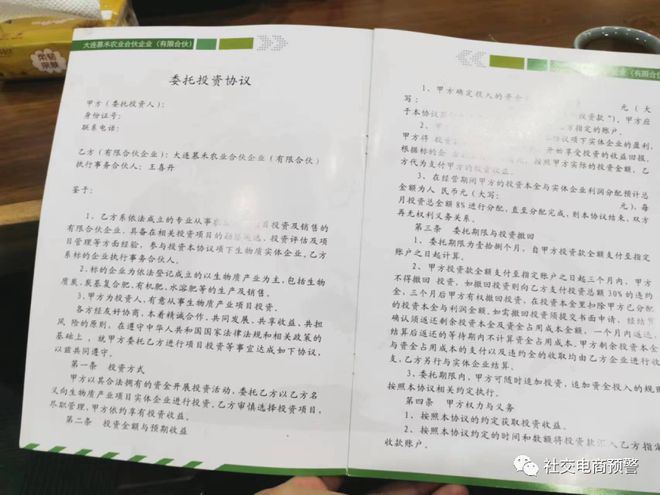 大连慕禾农业合伙企业（有限合伙）
委托投资协议
甲方（委托投资人）：
身份证号：
联系电话：
乙方（有限合伙企业）：大连慕禾农业合伙企业（有限合伙）
执行事务合伙人：王喜丹
鉴于：
1、乙方系依法成立的专业从事 投资及销售的
有限合伙企业，具备在相关投资项目的 投资评估及项
目管理等方面经验，参与投资本协议项下生物质实体企业，乙方
系标的企业执行事务合伙人。
2、标的企业为依法登记成立的以生物质产业为主，包括生物
质炭、炭基复合肥、有机肥、水溶肥等的生产及销售。
3、甲方为投资人，有意从事生物质产业项目投资。
各方经友好协商，本着精诚合作、共同发展、共享收益、共担
风 险的原则，在遵守中华人民共和国国家法律法规和相关政策的
基础上 ，就甲方委托乙方进行项目投资等事宜达成如下协议，
以兹共同遵守。
第一条 投资方式
甲方以其合法拥有的资金开展投资活动，委托乙方以乙方名
义向生物质产业项目实体企业进行投资，乙方审慎选择投资项目，
尽职管理，甲方依约享有投资收益。
第二条 投资金额与预期收益
企业（有限合伙
1、甲方确定投入的资金 元（大
写： 投资款"），甲方应
于本协议 指定的账户。
2、 协议项下实体企业的盈利，
甲方得 投资 享受投资的收益回报，
根据标的企 按照甲方实际的投资金额，乙
方代为支付甲方的投资收益。
3、在经营期间甲方的投资本金与实体企业利润分配预计总
金额为人 民币元（大写： 元），每
月投资总金额 8%进行分配，直至分配完成，则本协议结束，双方
再无权利义务关系。
第三条 委托期限与投资撤回
1、委托期限为壹拾捌个月，自甲方投资款金额支付至指定
账户之日起计算。
2、甲方投资款金额支付至指定账户之日起三个月内，甲方
不得撤回 投资，如撤回投资则向乙方支付投资总额 30%的违约
金，三个月后甲方有权撤回投资，在投资本金里扣除甲方已分配
的投资本金与利润金额，如需撤回投资须提交书面申请，经结
确认须返还剩余投资本金及资金占用成本金额，一个月内返还，
结算后返还的等待期内不计算资金占用成本。甲方剩余投资本金
与资金占用成本的支付以及违约金的收取均由乙方企业进行收
支，乙方另行与实体企业结算。
3、委托期限内，甲方可随时追加投资，追加资金投入的规则
按照本协议相关约定执行。
第四条 甲方权力与义务
1、按照本协议的约定获取投资收益。
2、按照本协议约定的时间和数额将投资款汇入乙方指定
收款账户。
社交电商预警